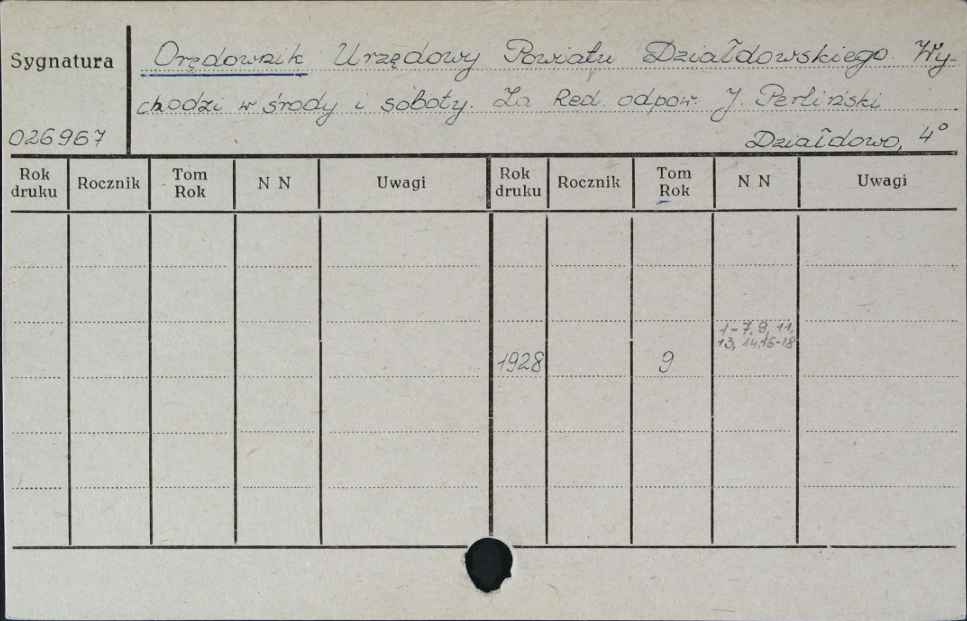 Sygnatura
Orędownik Urzędowy Powiatu Działdowskiego. Wy-
chodzi w środy i soboty. Za Red. odpow. J. Perliński
026967
Działdowo, 4°
Rok druku Rocznik Tom Rok N N Uwagi Rok druku Rocznik Tom Rok N N Uwagi
1-7, 9, 11,
13, 14, 16-18
1928 9